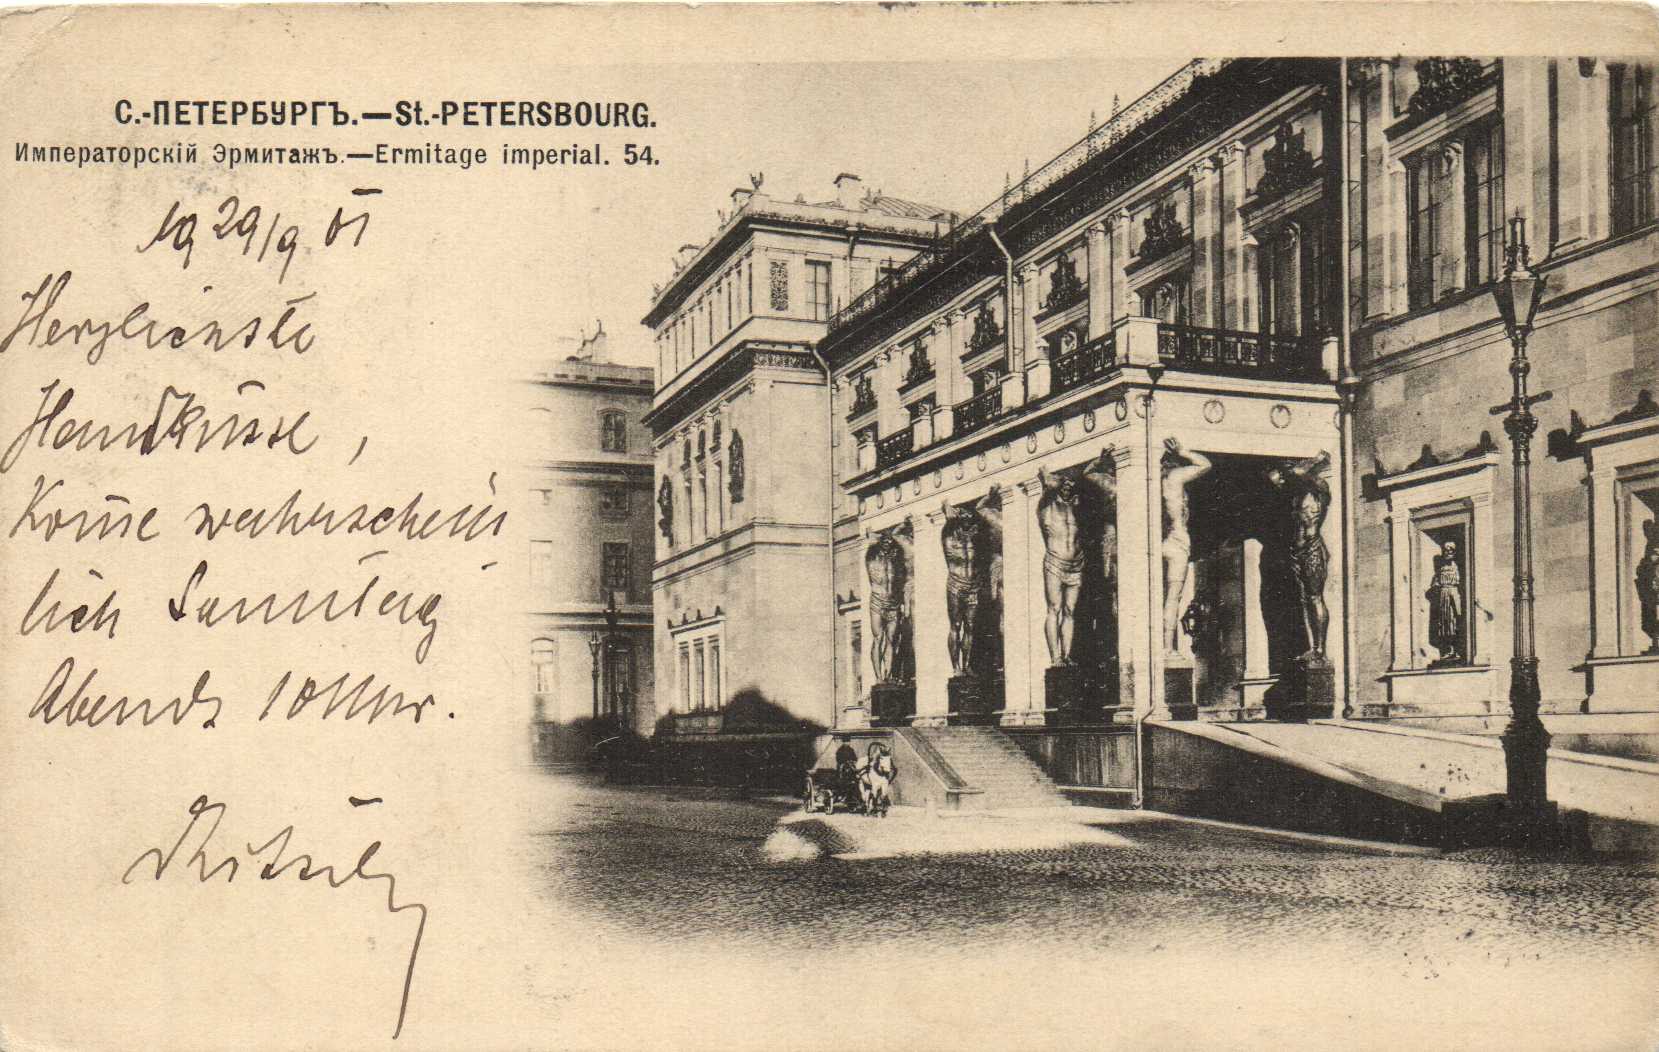 С.-ПЕТЕРБУРГЪ.—St.-PETERSBOURG.
Императорскій Эрмитажъ.—Ermitage imperial. 54.
19 29/9 01
Herzlichste
Handküsse,
Kom̄e wahrschein
lich Sonntag
Abends 10 Uhr.